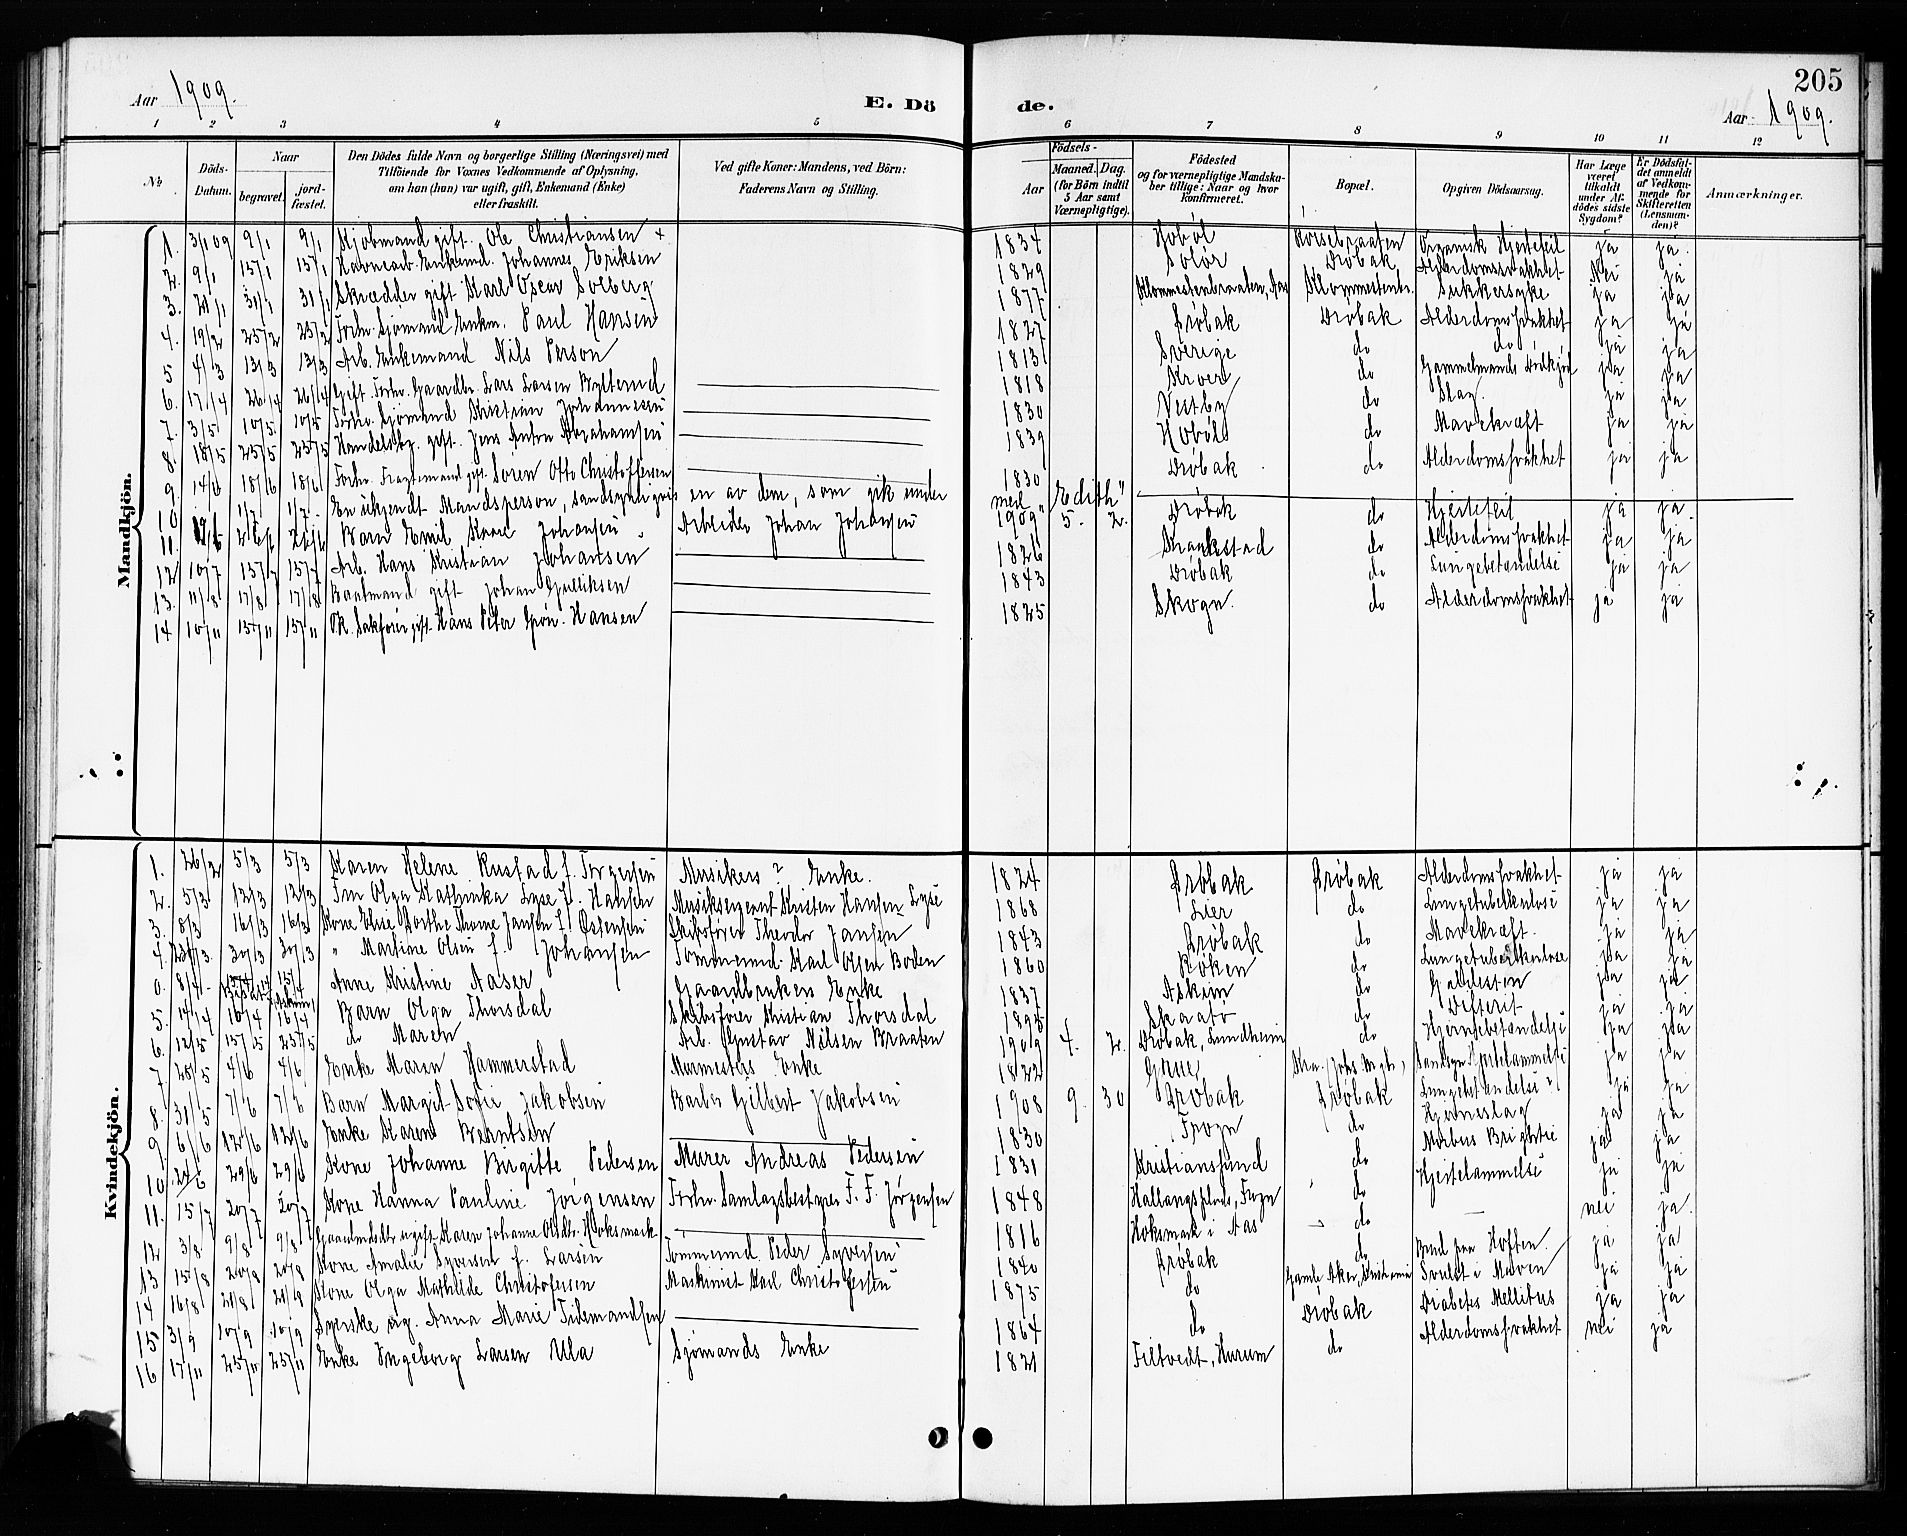 Aar 1909.
E. Dö
de.
205
Aar 1909.
1 2 3 4 5 6 7 8 9 10 11 12
No
Döds-Datum.
Naar
begravet.
jord-fæstet.
Den Dödes fulde Navn og borgerlige Stilling (Næringsvei) med Tilföiende for Voxnes Vedkommende af Oplysning, om han (hun) var ugift, gift, Enkemand (Enke) eller fraskilt.
Ved gifte Koner: Mandens, ved Börn: Faderens Navn og Stilling.
Födsels-
Aar
Maaned. Dag.
(for Börn indtil 5 Aar samt Værnepligtige).
Födested og for værnepligtige Mandskaber tillige: Naar og hvor konfirmeret.
Bopæl.
Opgiven Dödsaarsag.
Har Læge været tilkaldt under Afdödes sidste Sygdom?
Er Dödsfaldet anmeldt af Vedkommende for Skifteretten (Lensmanden)?
Anmærkninger.
Mandkjön.
1. 3/1 09 9/1 9/1 Kjøbmand gift. Ole Christiansen + 1834 Hobøl Korsebraaten Organisk Hjertefeil ja ja.
2. 9/1 15/1 15/1 Havnearb. Enkemd. Johannes Eriksen 1829 Solør Drøbak Alderdomssvakhet Nei ja
3. 31/1 31/1 Skrædder gift Karl Oscar Solberg 1877 Klommestenbraaten, Aas Klommestenbr. Sukkersyke ja ja
4. 19/2 25/2 25/2 Forhv. Sjømand Enkm. Paul Hansen 1827 Drøbak Drøbak Alderdomssvakhet ja ja
5 4/3 13/3 13/3 Arb. Enkemand Nils Person 1813 Sverige do do ja ja
6. 17/4 26/4 26/4 Gift. Forhv. Gaardbr. Lars Larsen 1818 Kroer do Gammelmands ja ja
7. 3/5 10/5 10/5 Forhv. Sjømand Kristian Johannesen 1830 Vestby do Slag. ja ja
8. 18/5 25/5 25/5 Handelsbg. gift. Jens Anton Abrahamsen 1839 Hobøl do Mavekræft ja ja
9. 14/6 18/6 18/6 Forhv. Fragtemand gift Søren Otto Christoffersen 1830 Drøbak do Alderdomssvakhet ja ja
10 1/7 1/7 En ukjendt Mandsperson, sandsynligvis en av dem, som gik under med "Edith"
11. 26/6 26/6 Barn Emil Kaare Johansen Arbeider Johan Johansen 1909 5. 2. Drøbak do Hjertefeil ja ja.
12 10/7 15/7 15/7 Arb. Hans Kristian Johansen 1826 Kraakstad do Alderdomssvakhet ja ja
13. 11/8 17/8 17/8 Baatmand gift Johan Gulliksen 1843 Drøbak do Lungebetændelse ja ja
14 10/11 15/11 15/11 Ok. Sakfører gift. Hans Peter Grøn-Hansen 1825 Skogn. do Alderdomssvakhet ja ja
Kvindekjön.
1. 26/2 5/3 5/3 Karen Helene Rustad f. Torgersen Musikers ? Enke. 1824 Drøbak Drøbak Alderdomssvakhet ja ja
2. 5/3 12/3 12/3 Fru Olga Kathinka Lyse f. Hansen Musiksergent Kristen Hansen Lyse 1868 Lier do Lungetuberkulose ja ja
3. 8/3 16/3 16/3 Kone Elise Dorthe Thorine Jansen f. Østensen Skibsfører Theodor Jansen 1843 Drøbak do Mavekræft. ja ja
4. 30/3 30/3 " Martine Olsen f. Johansen Tømmermd. Karl Olsen Boden 1860 Røken do Lungetuberkulose ja ja
0. 8/4 15/4 15/4 Anne Kristine Aaser Gaardbrukers Enke 1837 Askim do Galdesten ja ja
5. 14/4 16/4 16/4 Barn Olga Thorsdal Skibsfører Kristian Thorsdal 1895 Skaatø do Difterit ja ja
6. 12/5 15/5 25/5 do Maren Arb. Gustav Nilsen Braaten 1909 4. 2. Drøbak, Lundheim do Hjernebetændelse ja ja
7 28/5 4/6 4/6 Enke Maren Hammerstad Murmesters Enke 1822 Grue Kra. Sandsyn. Hjertelammelse ja ja
8. 31/5 7/6 7/6 Barn Margit Sofie Jakobsen Barber Gilbert Jakobsen 1908 9. 30 Drøbak Drøbak Lungebetændelse ja ja
9 6/6 12/6 12/6 Enke Karen Berntsen 1830 Frogn do Hjerneslag ja ja
10 24/6 29/6 29/6 Kone Johanne Birgitte Pedersen Murer Andreas Pedersen 1831 Kristiansund do Morbus Brightii ja ja
11. 15/7 20/7 20/7 Kone Hanna Pauline Jørgensen Forhv. Samlagsbestyrer F. F. Jørgensen 1848 Hallangsplads, Frogn do Hjertelammelse ja ja
12 3/8 9/8 9/8 Gaardmdsdtr. ugift Karen Johanne Olsdtr. Hoksmark 1816 Hoksmark i Aas do — nei ja.
13 15/8 20/8 20/8 Kone Amalie Syversen f. Larsen Tømmermd. Peder Syversen 1840 Drøbak do Brud paa Hoften. ja ja
14 16/8 21/8 21/8 Kone Olga Mathilde Christofersen Maskinist Karl Christofersen 1875 do Gamle Aker, Kristiania Svulst i Maven ja ja
15 3/9 10/9 10/9 Syerske ug. Anna Marie Tidemandsen 1864 do Drøbak Diabetes Mellitus ja ja
16 17/11 25/11 25/11 Enke Ingeborg Larsen Ula Sjømands Enke 1821 Filtvedt, Hurum do Alderdomssvakhet nei ja